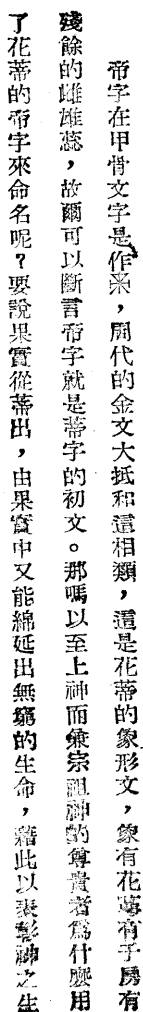 帝字在甲骨文字是作𥘅，周代的金文大抵和這相類，這是花蒂的象形文，象有花萼有子房有
殘餘的雌雄蕊，故爾可以斷言帝字就是蒂字的初文。那嗎以至上神而兼宗祖神的尊貴者為什麼用
了花蒂的帝字來命名呢？要說果實從蒂出，由果實中又能綿延出無窮的生命，藉此以表彰神之生